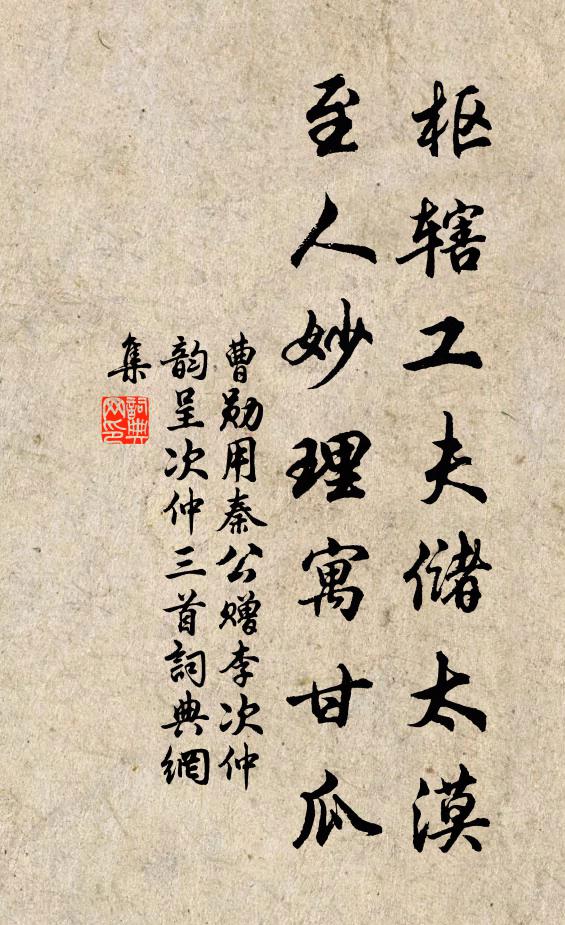 枢辖工夫储太漠
至人妙理寓甘瓜
曹勋用秦公赠李次仲
韵呈次仲三首詞典網
集
詞典網印